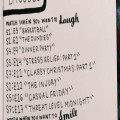 EPISODES
WATCH WHEN YOU WANT TO Laugh
S1:E5 "BASKETBALL"
S2:E1 "THE DUNDIES"
S4:E9 "DINNER PARTY"
S5:E14 "STRESS RELIEF: PART 1"
S7:E11 "CLASSY CHRISTMAS: PART 2"
S2:E2 "THE INJURY"
S5:E26 "CASUAL FRIDAY"
S7:E17 "THREAT LEVEL MIDNIGHT"
WATCH WHEN YOU WANT TO Smile